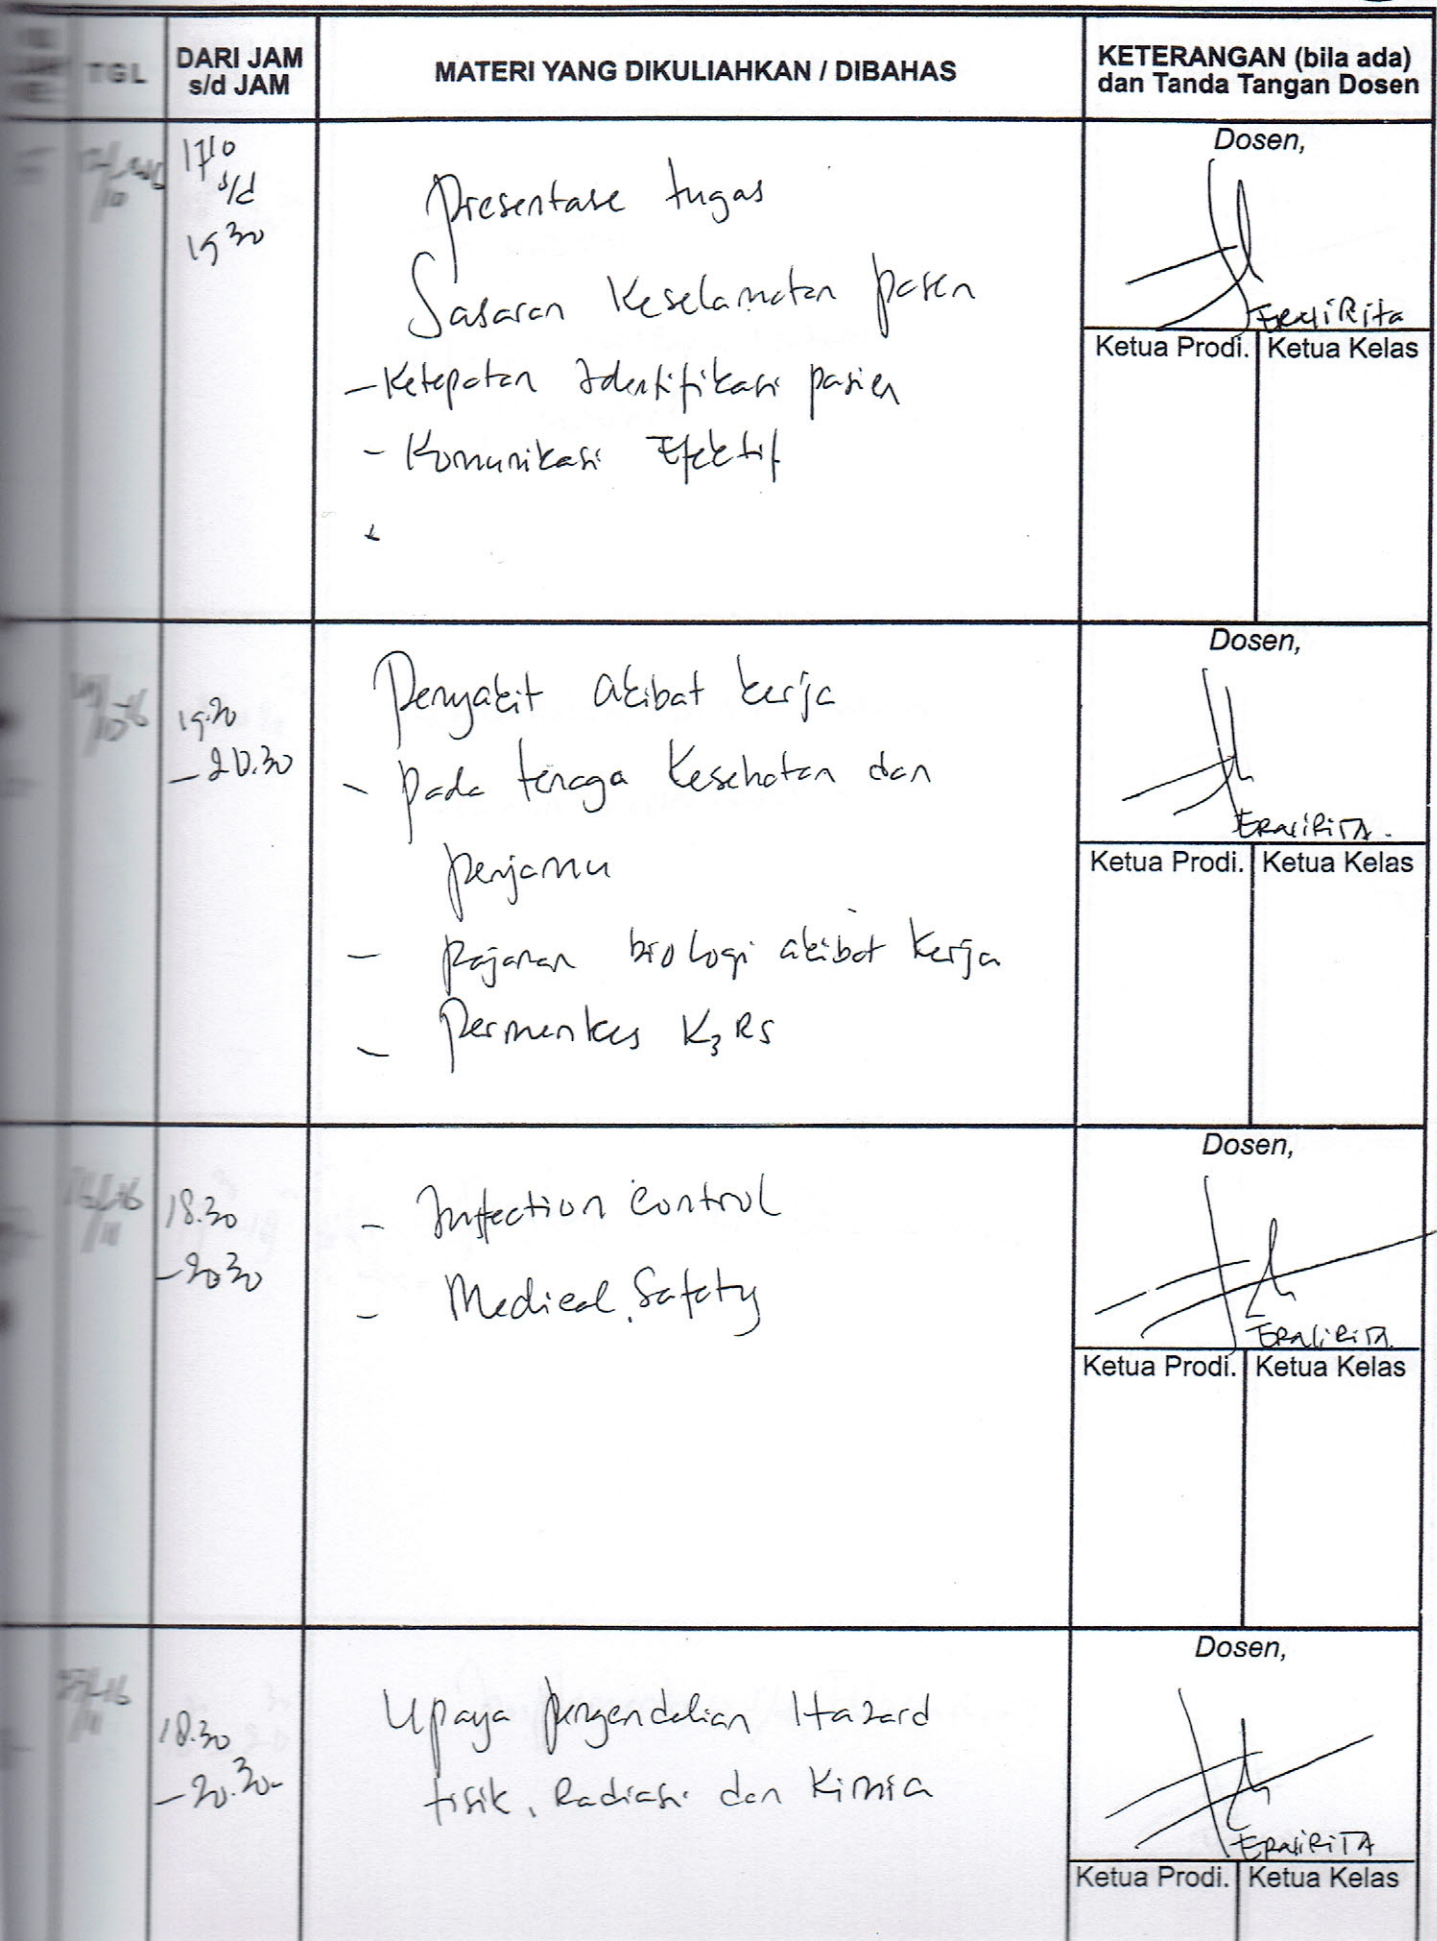 TGL
DARI JAM
s/d JAM
MATERI YANG DIKULIAHKAN / DIBAHAS
KETERANGAN (bila ada)
dan Tanda Tangan Dosen
s/d
Presentase tugas
Sasaran Keselamatan pasen
- Ketepatan Identifikasi pasien
- Komunikasi Efektif
Dosen,
Ketua Prodi.
Ketua Kelas
- 20.30
Penyakit akibat kerja
- pada tenaga Kesehatan dan
penjamu
- pajanan biologi akibat Kerja
- Permenkes K3 RS
Dosen,
Ketua Prodi.
Ketua Kelas
18.30
- 2030
- Infection Control
- Medical Safety
Dosen,
Ketua Prodi.
Ketua Kelas
18.30
- 20.30
Upaya pengendalian Hazard
fisik, Radiasi dan Kimia
Dosen,
Ketua Prodi.
Ketua Kelas